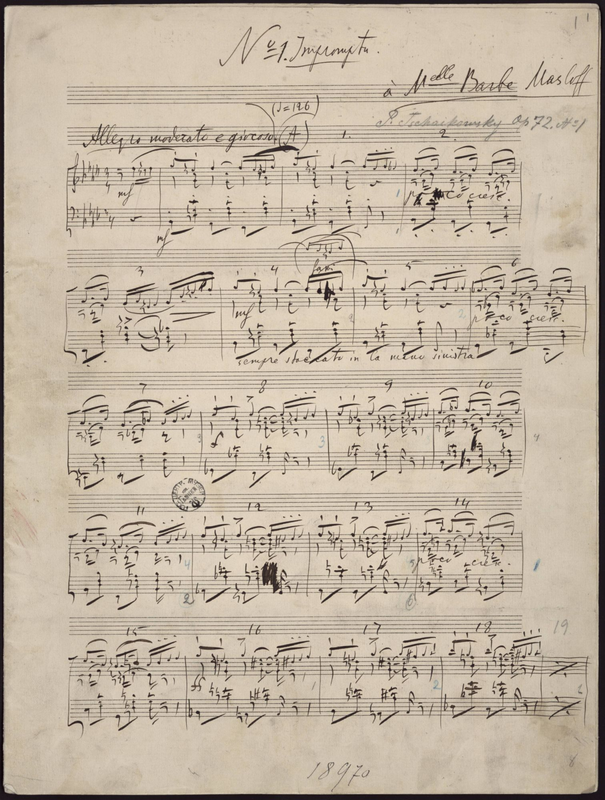 1
No 1. Impromptu.
à Mselle Barbe Masloff
(♩=126)
P. Tschaikowsky Op 72. No 1
Allegro moderato e giocoso. (A) 1. 2.
mf
poco cresc.
mf
3 4 5 6
mf
poco cresc.
sempre staccato in la mano sinistra
7 8 9 10
3 3 4
11 12 13 14
poco cresc.
4 1
2
15 16 17 18 19
ff
2
18970